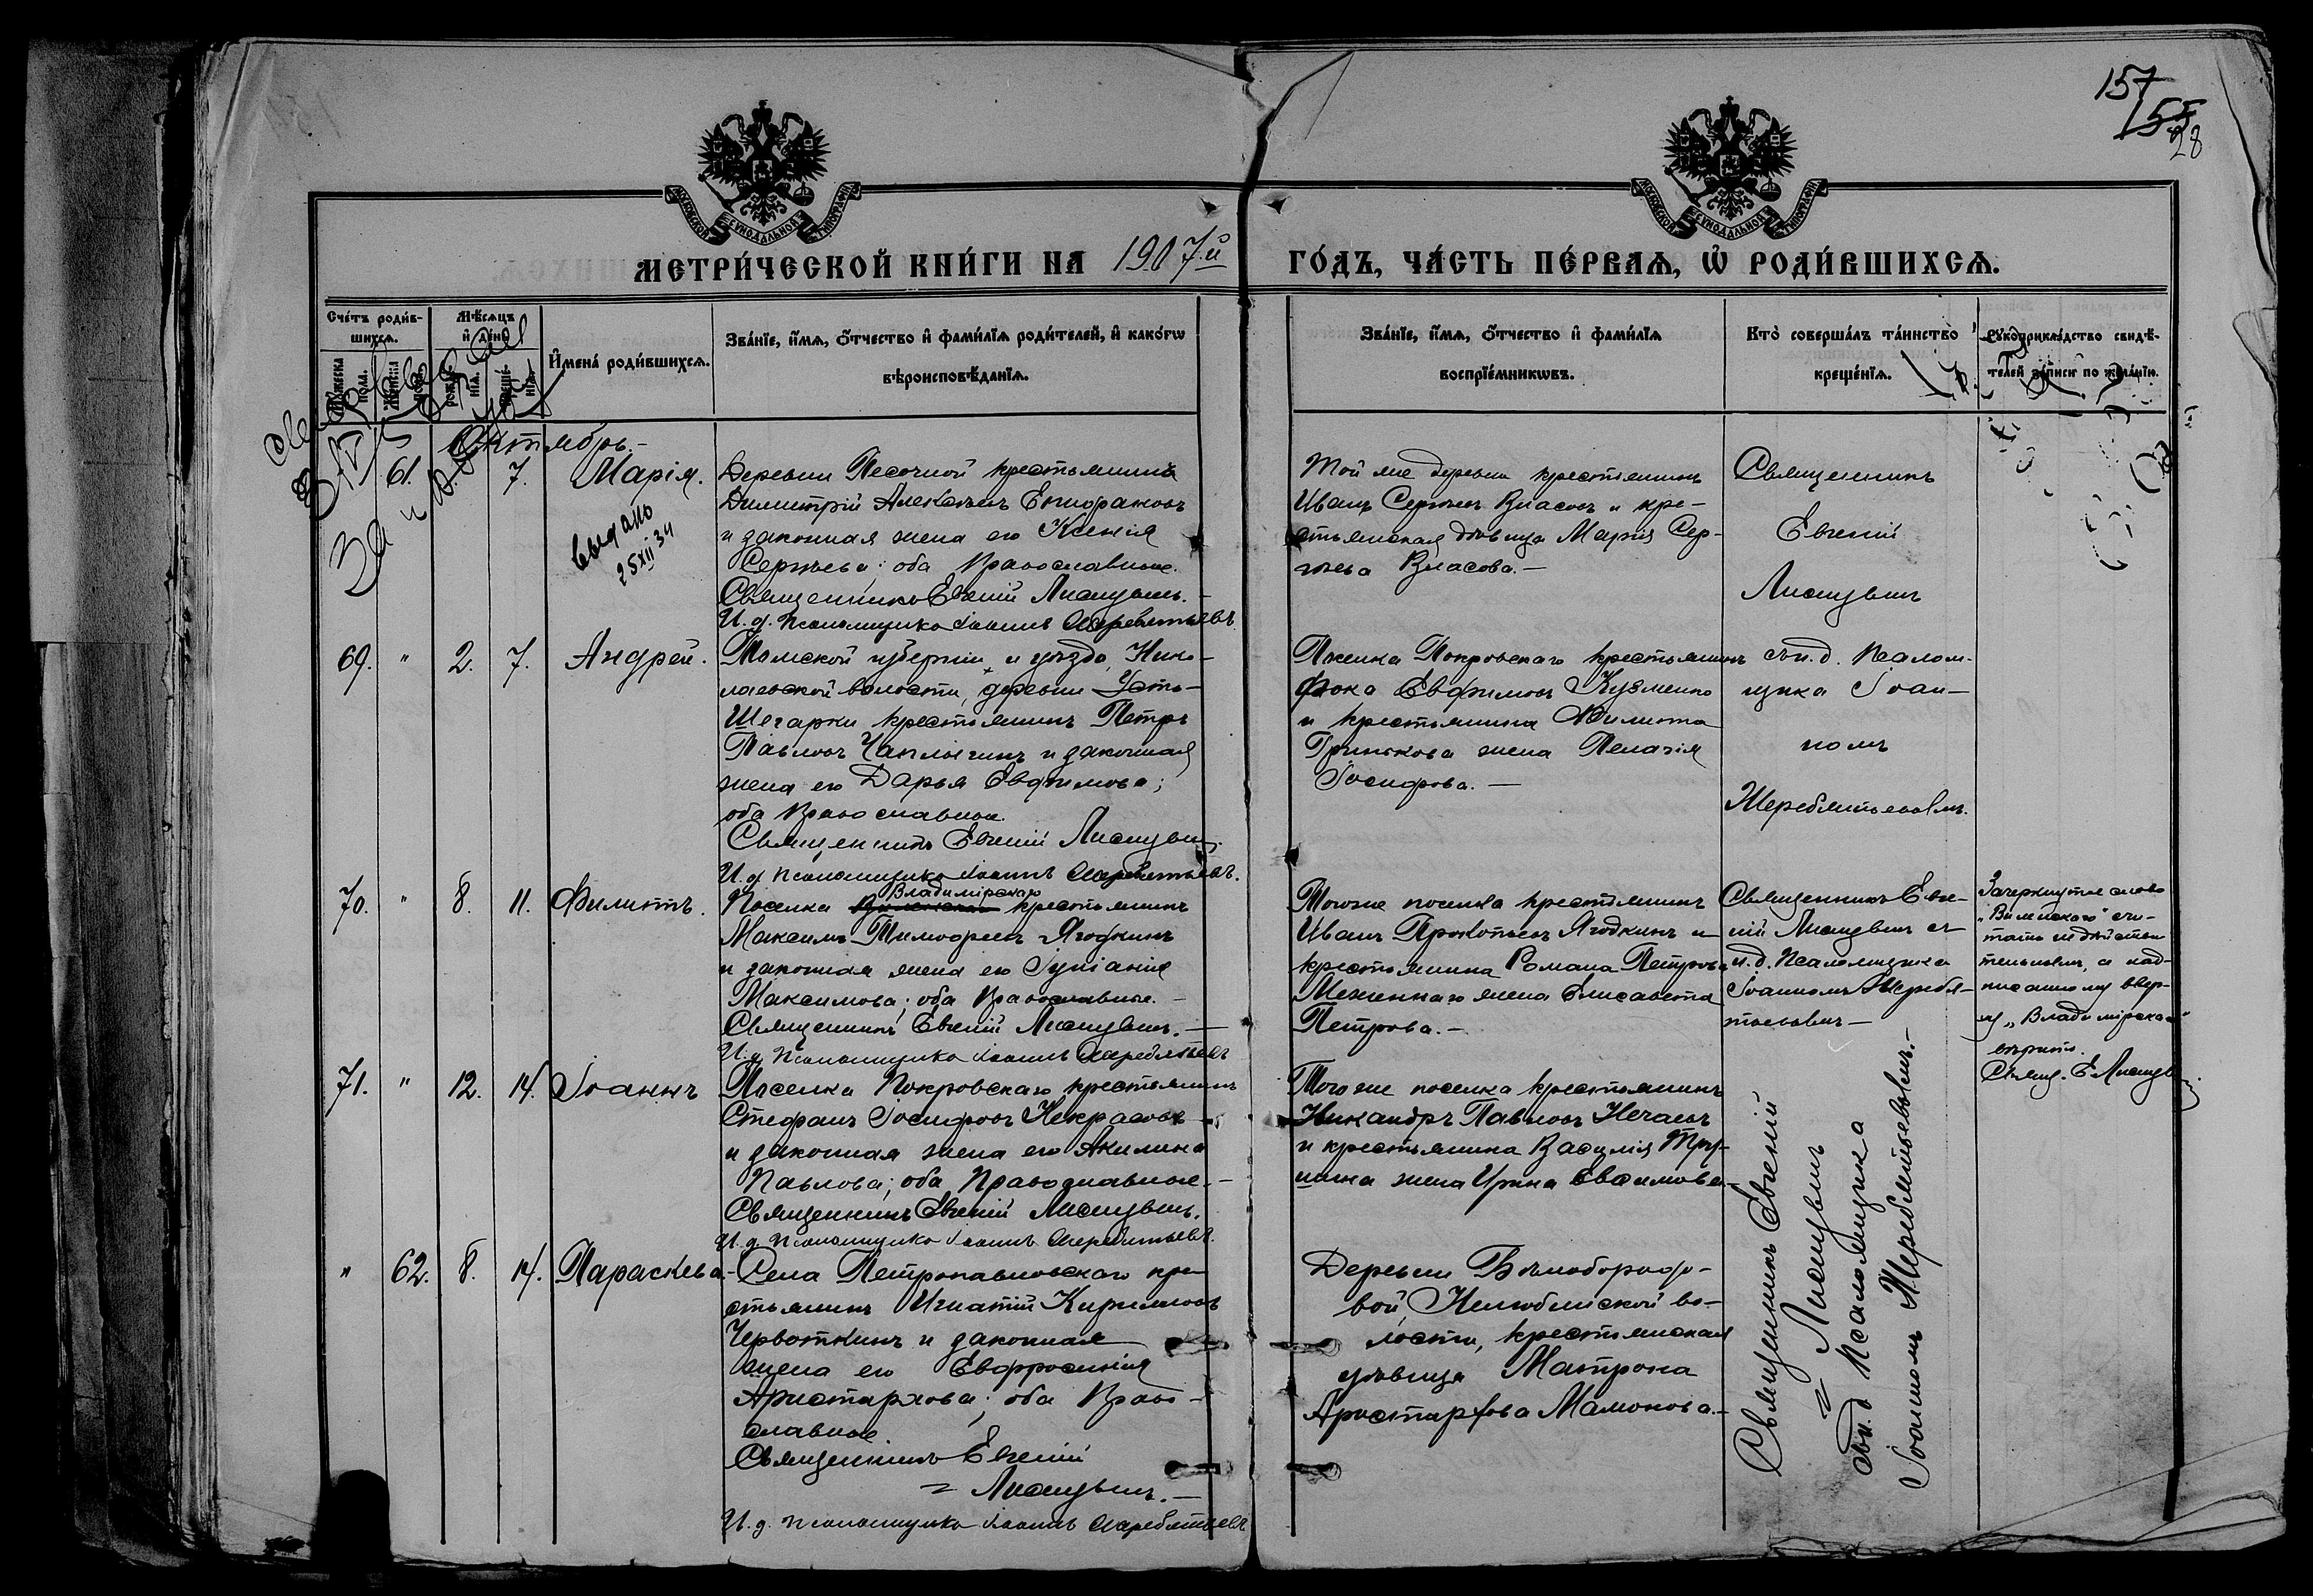 157
155
28
МОСКОВСКОЙ СѴНОДАЛЬНОЙ ТИПОГРАФІИ
МОСКОВСКОЙ СѴНОДАЛЬНОЙ ТИПОГРАФІИ
МЕТРИ́ЧЕСКОЙ КНИ́ГИ НА 1907.й ГО́ДЪ, ЧА́СТЬ ПЕ́РВАѦ, Ѡ҆ РОДИ́ВШИХСѦ.
Сче́тъ роди́в-
шихсѧ.
Мѣ́сѧцъ
и҆ де́нь
Мꙋжеска
пола.
Женска
пола.
рожде-
нїѧ.
креще-
нїѧ.
И҆мена̀ роди́вшихсѧ.
Зва́нїе, и҆́мѧ, ѻ҆́тчество и҆ фами́лїѧ роди́телей, и҆ како́гѡ
вѣроисповѣ́данїѧ.
Зва́нїе, и҆́мѧ, ѻ҆́тчество и҆ фами́лїѧ
воспрїе́мникѡвъ.
Кто̀ соверша́лъ та́инство
креще́нїѧ.
Рꙋкоприкла́дство свидѣ́-
телей записи по жела́нїю.
Октябрь.-
61. 7. Марія.
Выдано
25 XII 34
Деревни Песочной крестьянинъ
Димитрій Алексѣевъ Епифановъ
и законная жена его Ксенія
Сергѣева; оба православные.
Священникъ Евгеній Лисицынъ.-
И. д. псаломщика Іоаннъ Жеребятьевъ
Той же деревни крестьянинъ
Иванъ Сергѣевъ Власовъ и кре-
стьянская дѣвица Марія Сер-
гѣева Власова.-
Священникъ
Евгеній
Лисицынъ
69. " 2. 7. Андрей.
Томской губерніи и уѣзда, Нико-
лаевской волости, деревни Усть-
Шегарки крестьянинъ Петръ
Павловъ Чаплыгинъ и законная
жена его Дарья Евфимова;
оба православные.
Священникъ Евгеній Лисицынъ.
И. д. псаломщика Іоаннъ Жеребятьевъ.
Поселка Покровскаго крестьянинъ
Фока Евфимовъ Кузменко
и крестьянина Филиппа
Гринькова жена Пелагія
Іосифова.-
съ и. д. псалом-
щика Іоан-
номъ
Жеребятьевымъ.
70. " 8. 11. Филиппъ.
Владимірскаго
Поселка Виленскаго крестьянинъ
Максимъ Тимофеевъ Ягодкинъ
и законная жена его Іуліанія
Максимова; оба православные.-
Священникъ Евгеній Лисицынъ.-
И. д. псаломщика Іоаннъ Жеребятьевъ
Того же поселка крестьянинъ
Иванъ Прокопьевъ Ягодкинъ и
крестьянина Романа Петрова
жена Елисавета
Петрова.-
Священникъ Евге-
ній Лисицынъ съ
и. д. псаломщика
Іоанномъ Жеребя-
тьевымъ-
Зачеркнутое слово
„Виленскаго" счи-
тать недѣйстви-
тельнымъ, а над-
писанному ввер-
ху „Владимірскаго"
вѣрить.
Свящ. Е Лисицынъ.
71. " 12. 14. Іоаннъ
Поселка Покровскаго крестьянинъ
Стефанъ Іосифовъ Некрасовъ
и законная жена его Акилина
Павлова; оба православные.-
Священникъ Евгеній Лисицынъ.
И. д. псаломщика Іоаннъ Жеребятьевъ.
Того же поселка крестьянинъ
Никандръ Павловъ Нечаевъ
и крестьянина Василія Тру-
шина жена Ирина Евфимова.-
" 62. 8. 14. Параскева.-
Села Петропавловскаго кре-
стьянинъ Игнатій Кирилловъ
Червоткинъ и законная
жена его Евфросинія
Аристархова; оба право-
славные.
Священникъ Евгеній
= Лисицынъ.-
И. д. псаломщика Іоаннъ Жеребятьевъ
Деревни Бѣлобородо-
вой, Нелюбинской во-
лости, крестьянская
дѣвица Матрона
Аристархова Мамонова.-
Священникъ Евгеній
= Лисицынъ
съ и. д. псаломщика
Іоанномъ Жеребятьевымъ.-